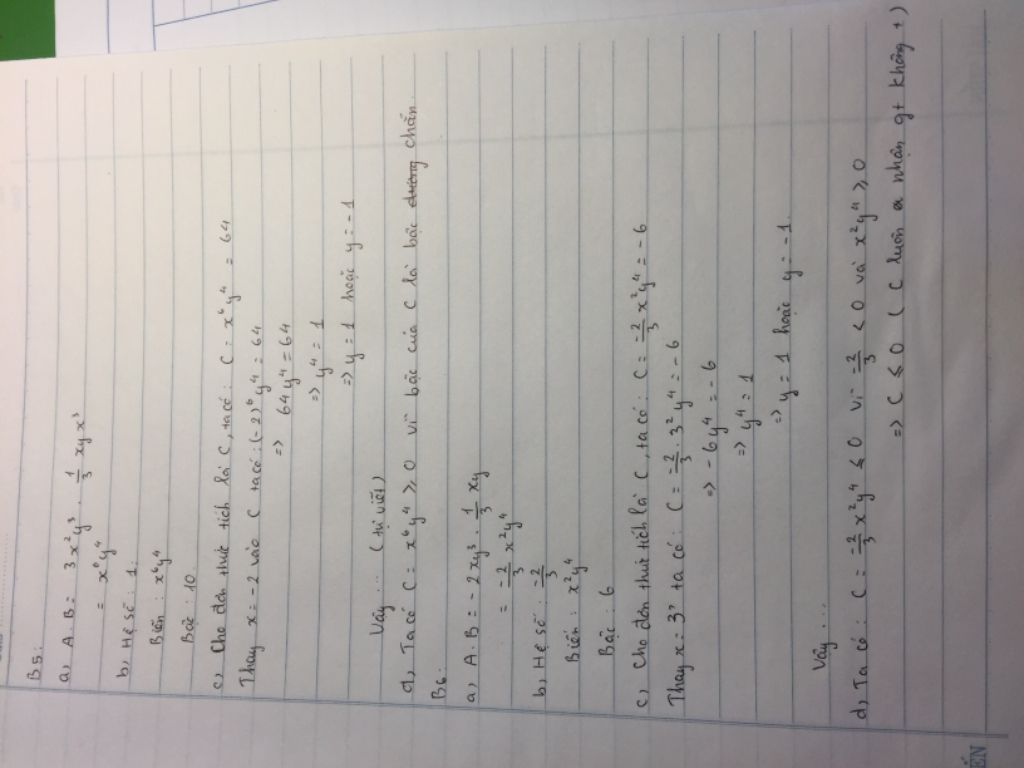 B5:
a) A.B = 3x²y³ . 1/3 xyx³
= x⁶y⁴
b) Hệ số : 1.
Biến : x⁶y⁴
Bậc : 10.
c) Cho đơn thức tích là C, ta có : C = x⁶y⁴ = 64
Thay x = -2 vào C ta có : (-2)⁶y⁴ = 64
=> 64y⁴ = 64
=> y⁴ = 1
=> y = 1 hoặc y = -1
Vậy ... (tự viết)
d) Ta có C = x⁶y⁴ ≥ 0 vì bậc của C là bậc chẵn.
B6:
a) A.B = -2xy³ . 1/3 xy
= -2/3 x²y⁴
b) Hệ số : -2/3
Biến : x²y⁴
Bậc : 6
c) Cho đơn thức tích là C, ta có : C = -2/3 x²y⁴ = -6
Thay x = 3, ta có : C = -2/3 . 3²y⁴ = -6
=> -6y⁴ = -6
=> y⁴ = 1
=> y = 1 hoặc y = -1.
Vậy ...
d) Ta có : C = -2/3 x²y⁴ ≤ 0 vì -2/3 < 0 và x²y⁴ ≥ 0
=> C ≤ 0 ( C luôn nhận gt không + )
ẾN